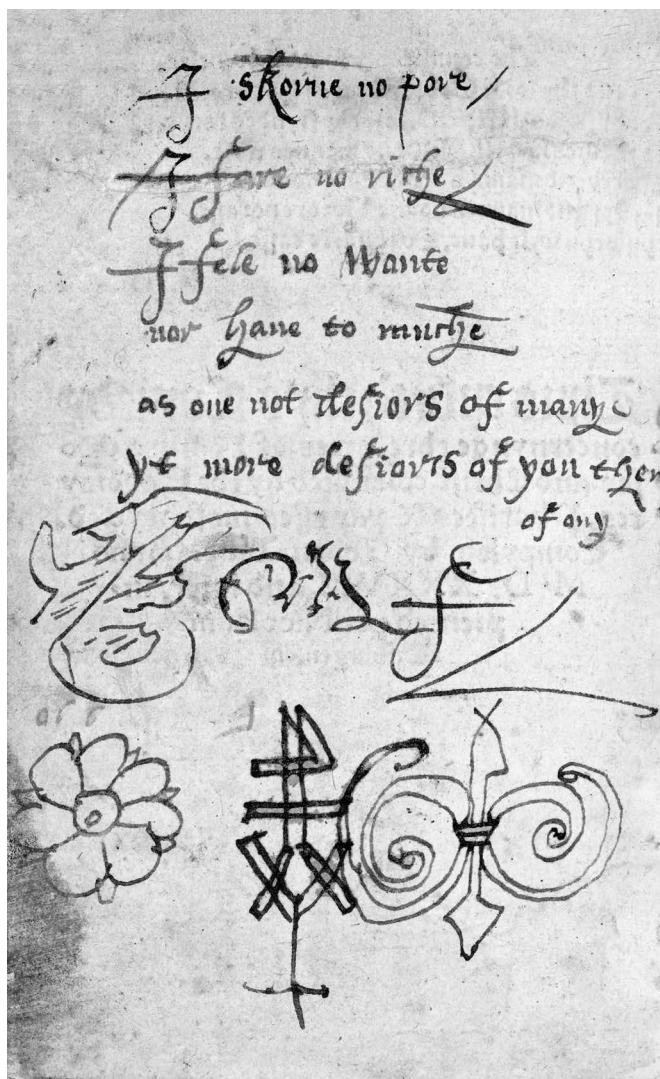 I skorne no pore
I fare no riche
I fele no Wante
nor haue to muche
as one not desiors of many
yt more desiors of you then
of any